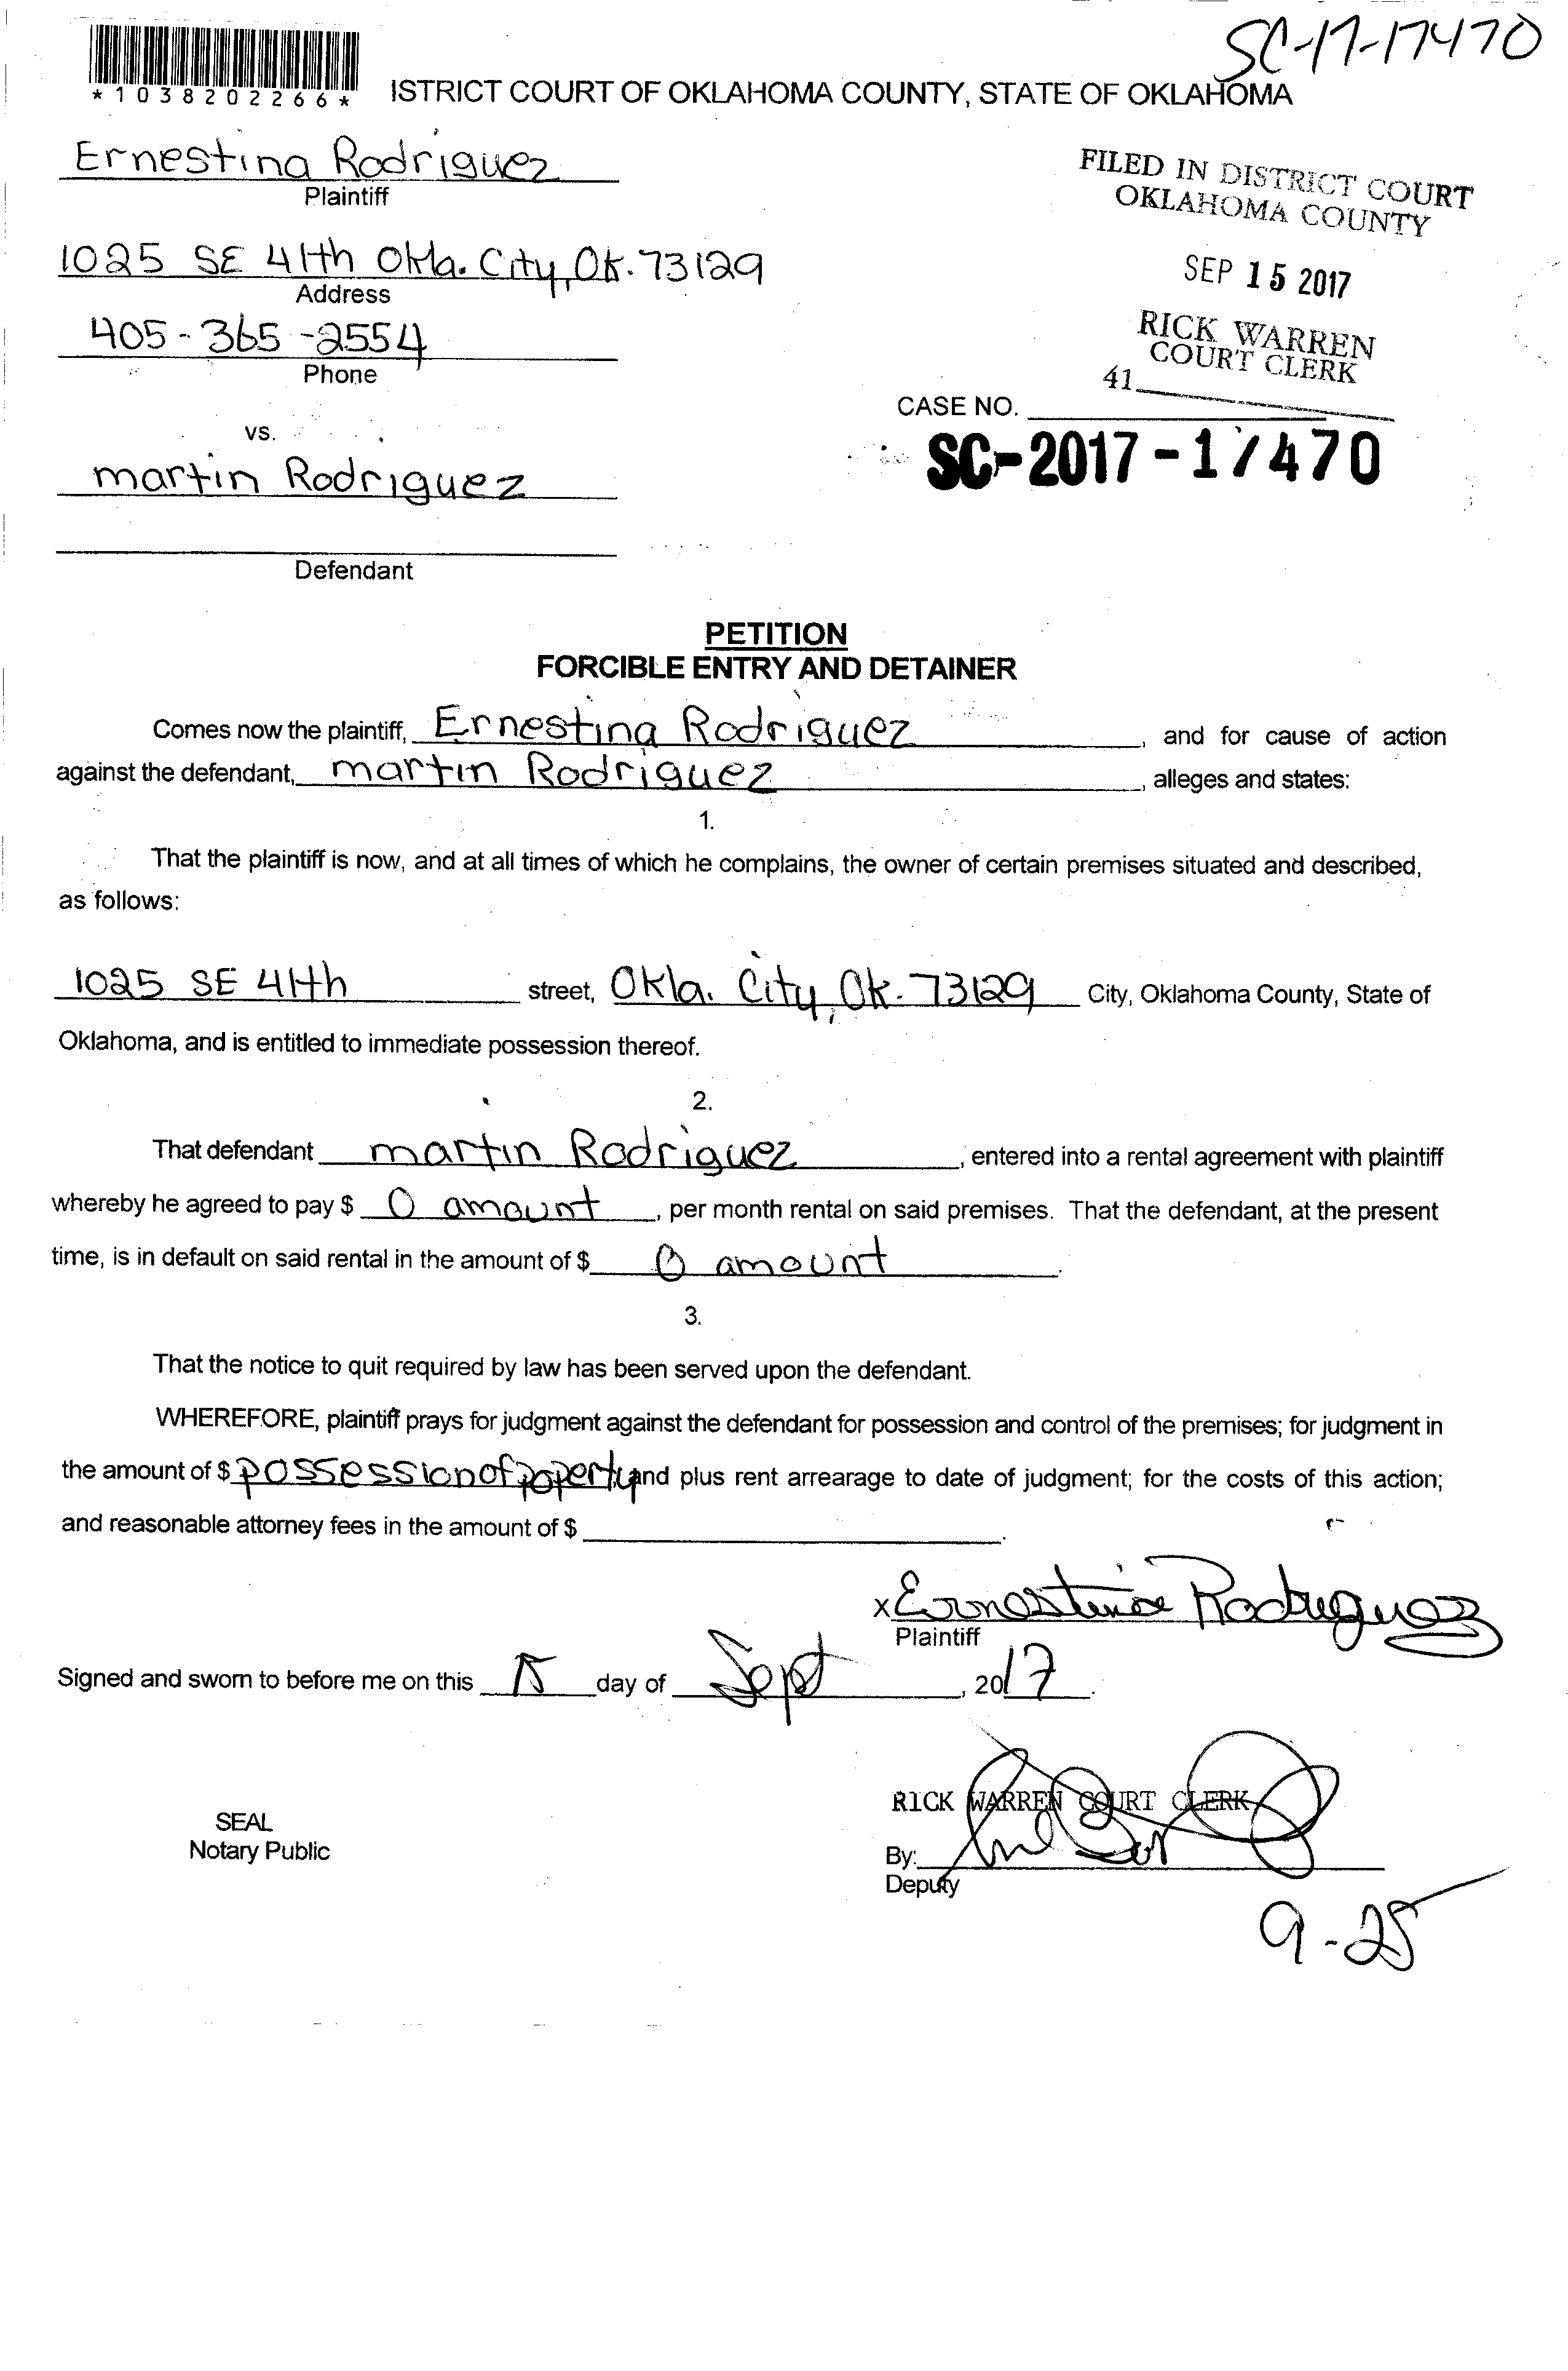 SC-17-17470
*1038202266*
ISTRICT COURT OF OKLAHOMA COUNTY, STATE OF OKLAHOMA
Ernestina Rodriguez
Plaintiff
FILED IN DISTRICT COURT
OKLAHOMA COUNTY
1025 SE 41th Okla. City, Ok. 73129
Address
SEP 15 2017
405-365-2554
Phone
RICK WARREN
COURT CLERK
41
CASE NO.
vs.
SC-2017-17470
martin Rodriguez
Defendant
PETITION
FORCIBLE ENTRY AND DETAINER
Comes now the plaintiff, Ernestina Rodriguez, and for cause of action
against the defendant, martin Rodriguez, alleges and states:
1.
That the plaintiff is now, and at all times of which he complains, the owner of certain premises situated and described,
as follows:
1025 SE 41th street, Okla. City, Ok. 73129 City, Oklahoma County, State of
Oklahoma, and is entitled to immediate possession thereof.
2.
That defendant martin Rodriguez, entered into a rental agreement with plaintiff
whereby he agreed to pay $ 0 amount, per month rental on said premises. That the defendant, at the present
time, is in default on said rental in the amount of $ 0 amount.
3.
That the notice to quit required by law has been served upon the defendant.
WHEREFORE, plaintiff prays for judgment against the defendant for possession and control of the premises; for judgment in
the amount of $ possession of poperty and plus rent arrearage to date of judgment; for the costs of this action;
and reasonable attorney fees in the amount of $ .
x Ernestina Rodriguez
Plaintiff
Signed and sworn to before me on this 15 day of Sept, 2017.
RICK WARREN COURT CLERK
SEAL
Notary Public
By:
Deputy
9-25